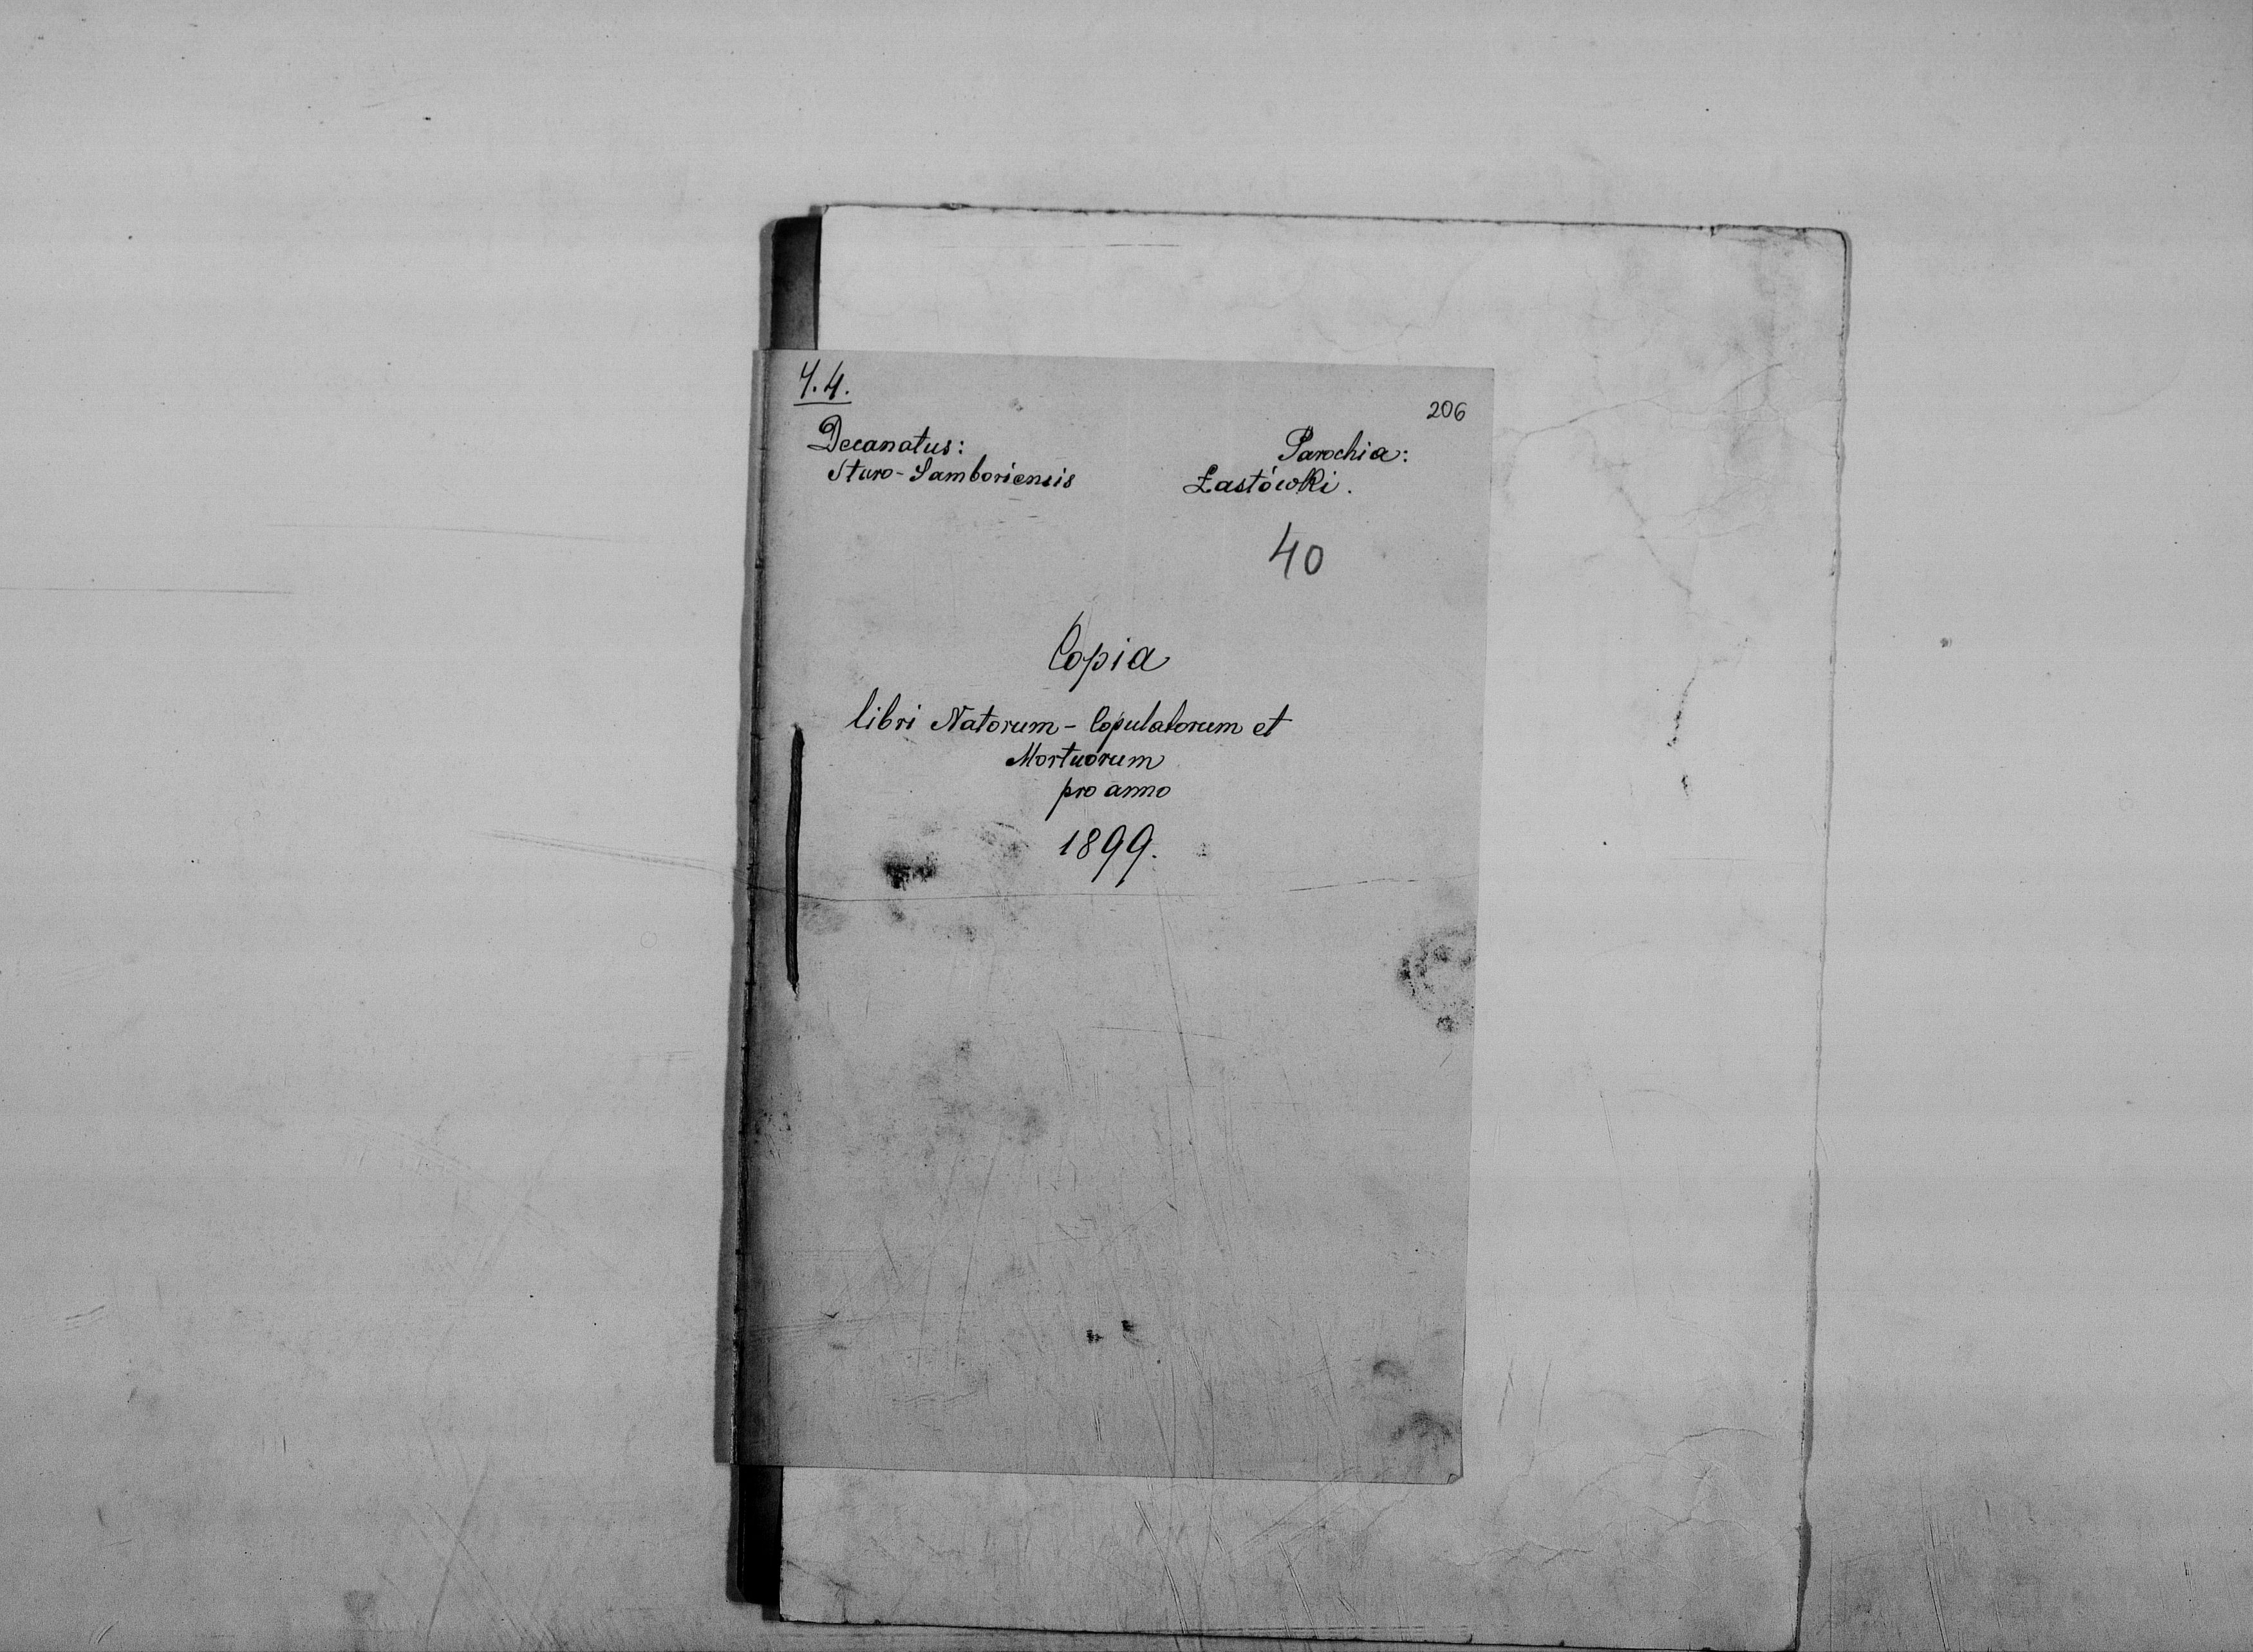 4.4.
206
Decanatus:
Staro-Samboriensis
Parochia:
Łastówki.
40
Copia
libri Natorum - Copulatorum et
Mortuorum
pro anno
1899.